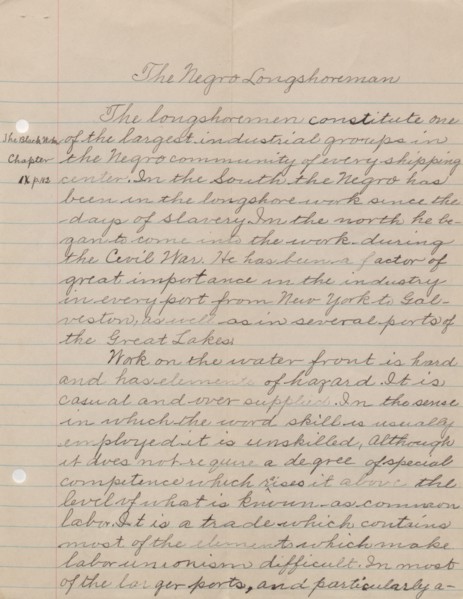 The Negro Longshoreman
The longshoremen constitute one
of the largest industrial groups in
the Negro community of every shipping
center. In the South the Negro has
been in the longshore work since the
days of slavery. In the north he be-
gan to come into the work during
the Civil War. He has been a factor of
great importance in the industry
in every port from New York to Gal-
veston, as well as in several ports of
the Great Lakes.
The Black Worker
Chapter
IX p.182
Work on the water front is hard
and has elements of hazard. It is
casual and over supplied. In the sense
in which the word skill is usually
employed it is unskilled, Although
it does not require a degree of special
competence which rises it above the
level of what is known as common
labor. It is a trade which contains
most of the elements which make
labor unionism difficult. In most
of the larger ports, and particularly a-